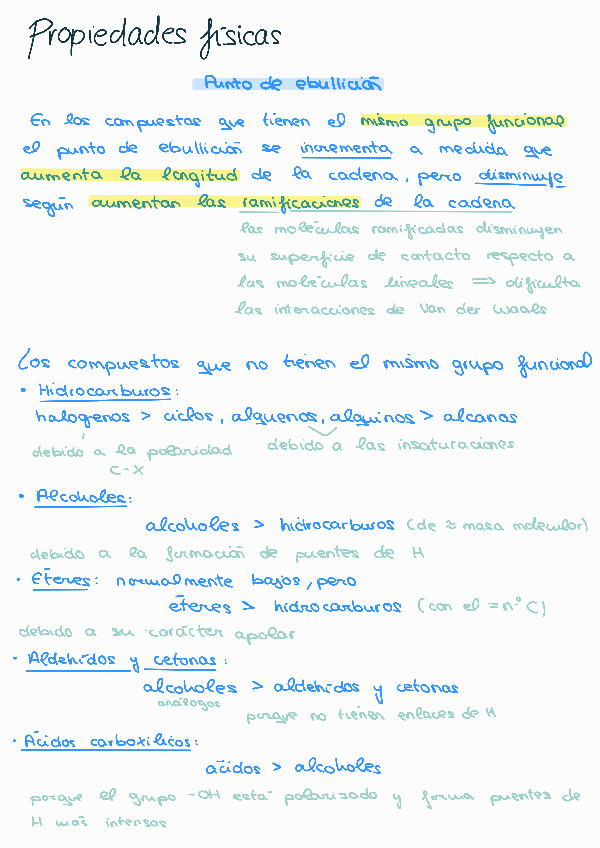 Propiedades físicas
Punto de ebullición
En los compuestos que tienen el mismo grupo funcional
el punto de ebullición se incrementa a medida que
aumenta la longitud de la cadena, pero disminuye
según aumentan las ramificaciones de la cadena
las moléculas ramificadas disminuyen
su superficie de contacto respecto a
las moléculas lineales => dificulta
las interacciones de Van der Waals
Los compuestos que no tienen el mismo grupo funcional
• Hidrocarburos:
halogenos > ciclos, alquenos, alquinos > alcanos
debido a la polaridad debido a las insaturaciones
C-X
• Alcoholes:
alcoholes > hidrocarburos (de ≈ masa molecular)
debido a la formación de puentes de H
• Éteres: normalmente bajos, pero
éteres > hidrocarburos (con el = n° C)
debido a su carácter apolar
• Aldehídos y cetonas:
alcoholes > aldehídos y cetonas
análogos
porque no tienen enlaces de H
• Ácidos carboxílicos:
ácidos > alcoholes
porque el grupo -OH está polarizado y forma puentes de
H más intensos